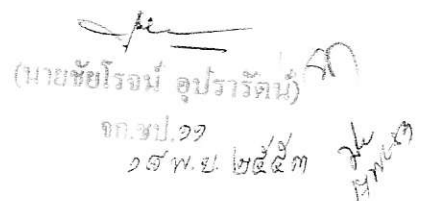 (นายชัยโรจน์ อุปรารัตน์)
จก.ชป.๑๑
๑๕ พ.ย. ๒๕๕๓